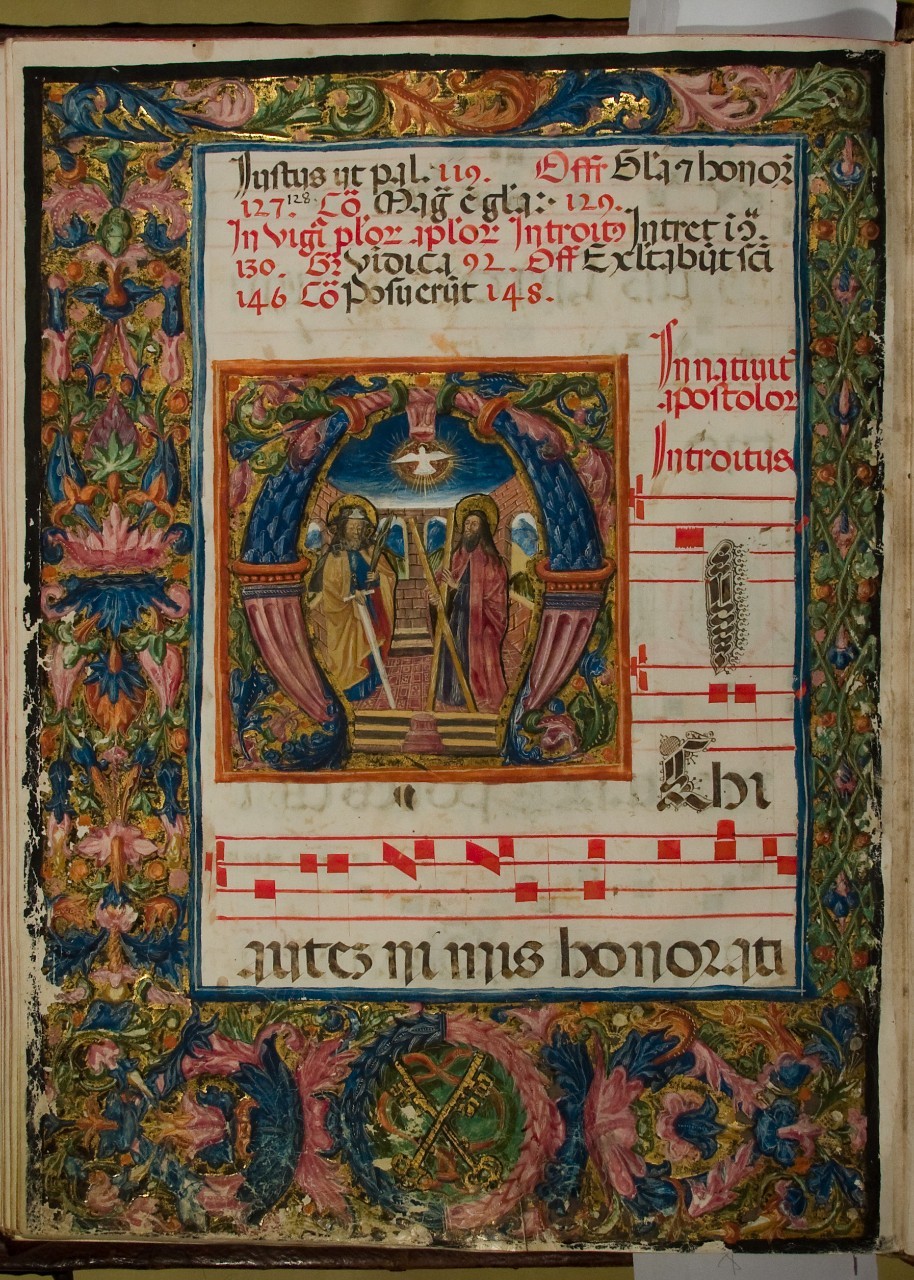 Justus ut pal. 119. Off Gl'a ⁊ honor
127. 128. Cõ Mag̃ ẽ gl'a: 129.
In vigi plor aplor Introit9 Intret i
130. Gr Vidica 92. Off Exltabũt sci
146 Cõ Posuerũt 148.
In natiuit
apostolor
Introitus
M
I
Chi
autez ni mis honorati